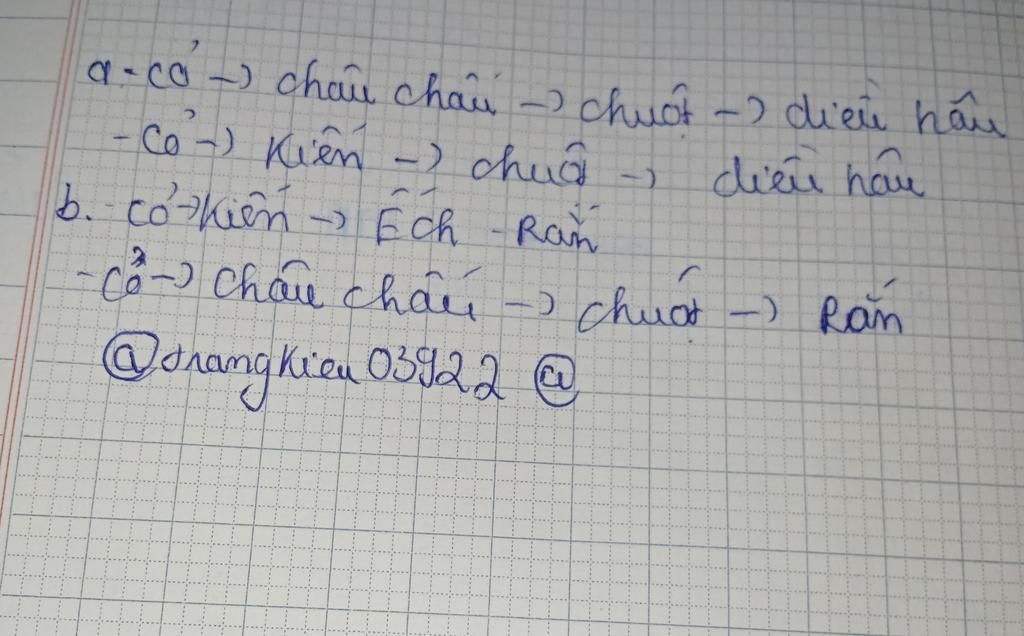 a - cỏ → châu chấu → chuột → diều hâu
- Cỏ → Kiến → chuột → diều hâu
b. - cỏ → kiến → Ếch - Rắn
- cỏ → châu chấu → chuột → Rắn
@trangkieu03922 @